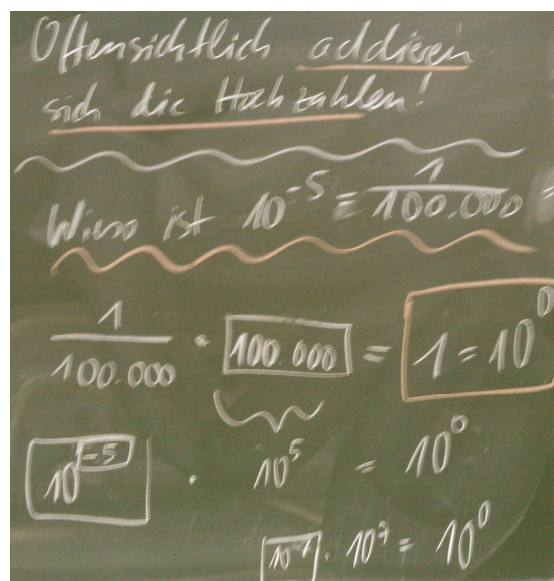 Offensichtlich addieren
sich die Hochzahlen!
Wieso ist 10⁻⁵ = 1/100.000 =
1/100.000 · 100.000 = 1 = 10⁰
10⁻⁵ · 10⁵ = 10⁰
10⁻⁷ · 10⁷ = 10⁰